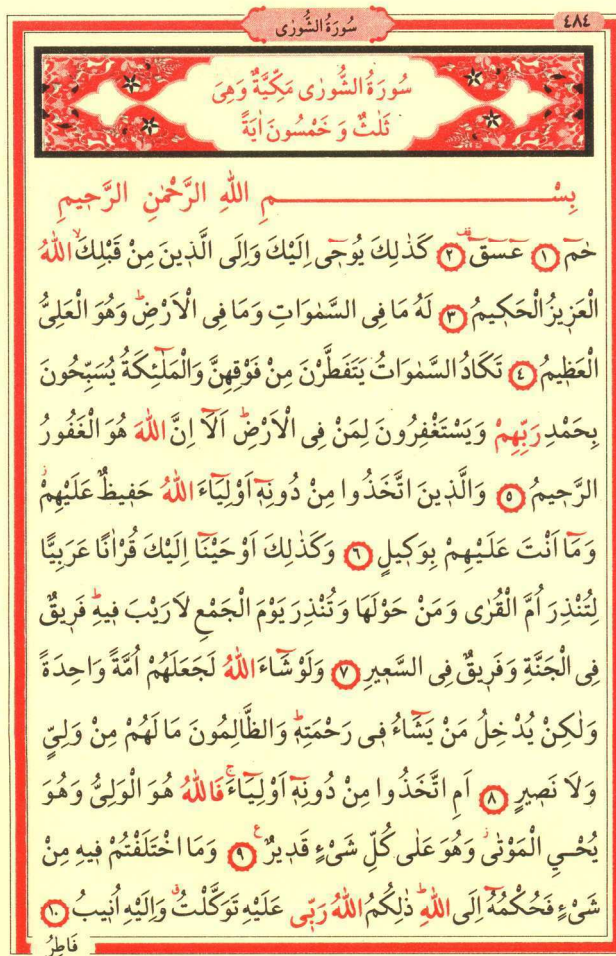 سُورَةُ الشُّورٰى
٤٨٤
سُورَةُ الشُّورٰى مَكِّيَّةٌ وَهِىَ
ثَلٰثٌ وَ خَمْسُونَ اٰيَةً
بِسْــــــمِ اللّٰهِ الرَّحْمٰنِ الرَّحٖيمِ
حٰمٓ ﴿١﴾ عٓسٓقٓ ﴿٢﴾ كَذٰلِكَ يُوحٖٓى اِلَيْكَ وَاِلَى الَّذٖينَ مِنْ قَبْلِكَۙ اللّٰهُ
الْعَزٖيزُ الْحَكٖيمُ ﴿٣﴾ لَهُ مَا فِى السَّمٰوَاتِ وَمَا فِى الْاَرْضِؕ وَهُوَ الْعَلِىُّ
الْعَظٖيمُ ﴿٤﴾ تَكَادُ السَّمٰوَاتُ يَتَفَطَّرْنَ مِنْ فَوْقِهِنَّ وَالْمَلٰٓئِكَةُ يُسَبِّحُونَ
بِحَمْدِ رَبِّهِمْ وَيَسْتَغْفِرُونَ لِمَنْ فِى الْاَرْضِؕ اَلَٓا اِنَّ اللّٰهَ هُوَ الْغَفُورُ
الرَّحٖيمُ ﴿٥﴾ وَالَّذٖينَ اتَّخَذُوا مِنْ دُونِهٖٓ اَوْلِيَٓاءَ اللّٰهُ حَفٖيظٌ عَلَيْهِمْؗ
وَمَٓا اَنْتَ عَلَيْهِمْ بِوَكٖيلٍ ﴿٦﴾ وَكَذٰلِكَ اَوْحَيْنَٓا اِلَيْكَ قُرْاٰنًا عَرَبِيًّا
لِتُنْذِرَ اُمَّ الْقُرٰى وَمَنْ حَوْلَهَا وَتُنْذِرَ يَوْمَ الْجَمْعِ لَا رَيْبَ فٖيهِؕ فَرٖيقٌ
فِى الْجَنَّةِ وَفَرٖيقٌ فِى السَّعٖيرِ ﴿٧﴾ وَلَوْ شَٓاءَ اللّٰهُ لَجَعَلَهُمْ اُمَّةً وَاحِدَةً
وَلٰكِنْ يُدْخِلُ مَنْ يَشَٓاءُ فٖى رَحْمَتِهٖؕ وَالظَّالِمُونَ مَا لَهُمْ مِنْ وَلِىٍّ
وَلَا نَصٖيرٍ ﴿٨﴾ اَمِ اتَّخَذُوا مِنْ دُونِهٖٓ اَوْلِيَٓاءَۚ فَاللّٰهُ هُوَ الْوَلِىُّ وَهُوَ
يُحْـىِ الْمَوْتٰىؗ وَهُوَ عَلٰى كُلِّ شَىْءٍ قَدٖيرٌ ﴿٩﴾ وَمَا اخْتَلَفْتُمْ فٖيهِ مِنْ
شَىْءٍ فَحُكْمُهُٓ اِلَى اللّٰهِؕ ذٰلِكُمُ اللّٰهُ رَبّٖى عَلَيْهِ تَوَكَّلْتُ وَاِلَيْهِ اُنٖيبُ ﴿١٠﴾
فَاطِرُ